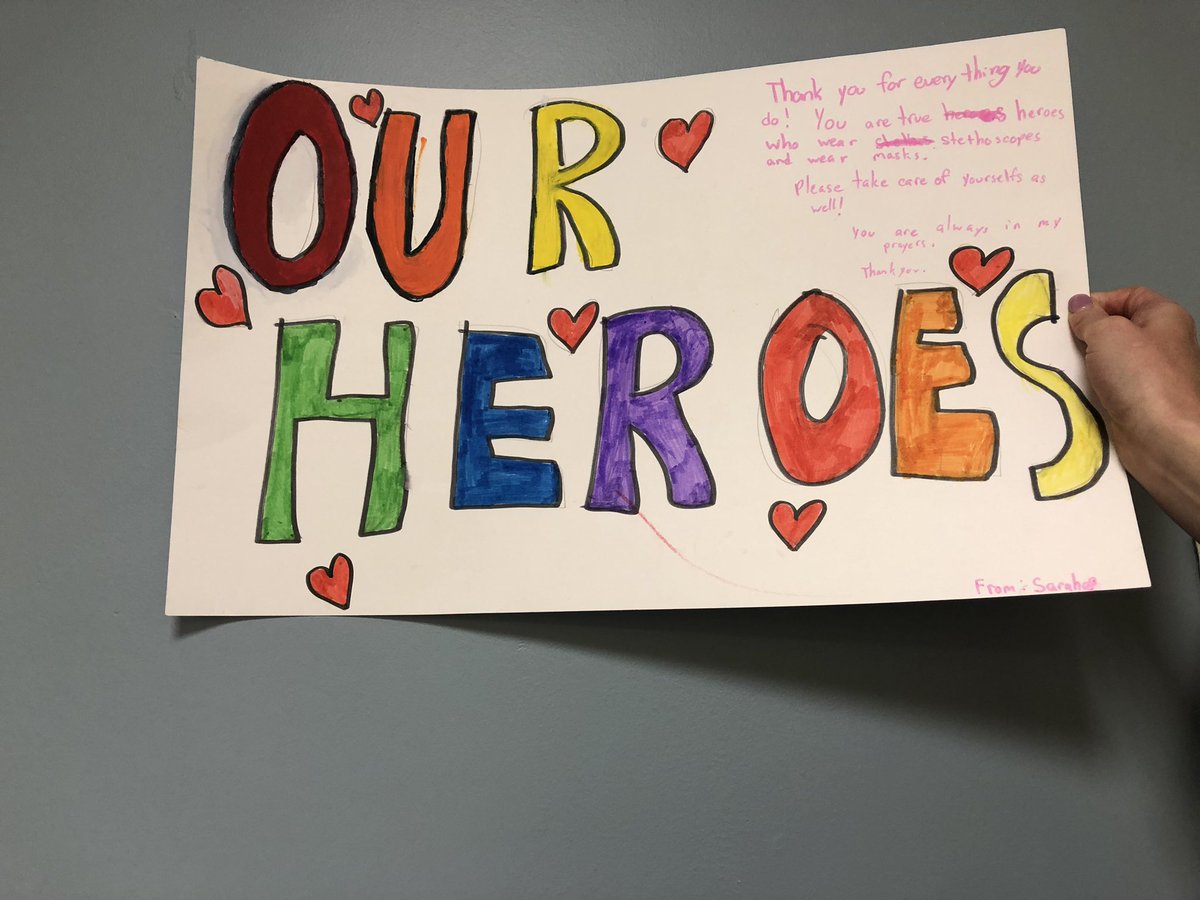 OUR
HEROES
Thank you for every thing you
do! You are true heroes
who wear stethoscopes
and wear masks.
Please take care of yourselfs as
well!
You are always in my
prayers.
Thank you.
From: Sarah